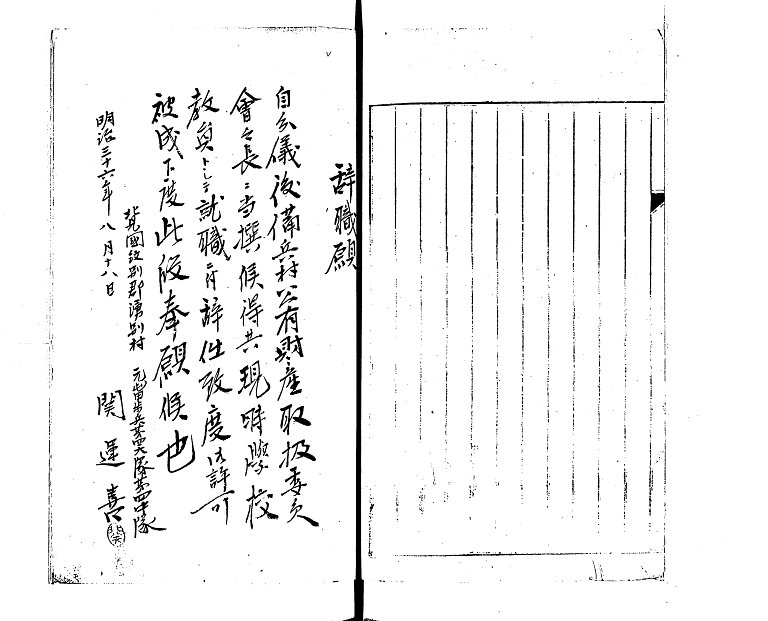 辞職願
自分儀後備兵村公有財産取扱委員
會々長ニ当撰候得共現時學校
教員トシテ就職ニ付辞任致度御許可
被成下度此段奉願候也
明治三十六年八月十八日
北見國紋別郡湧別村
元屯田歩兵第四大隊第四中隊
関運喜